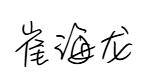 崔海龙